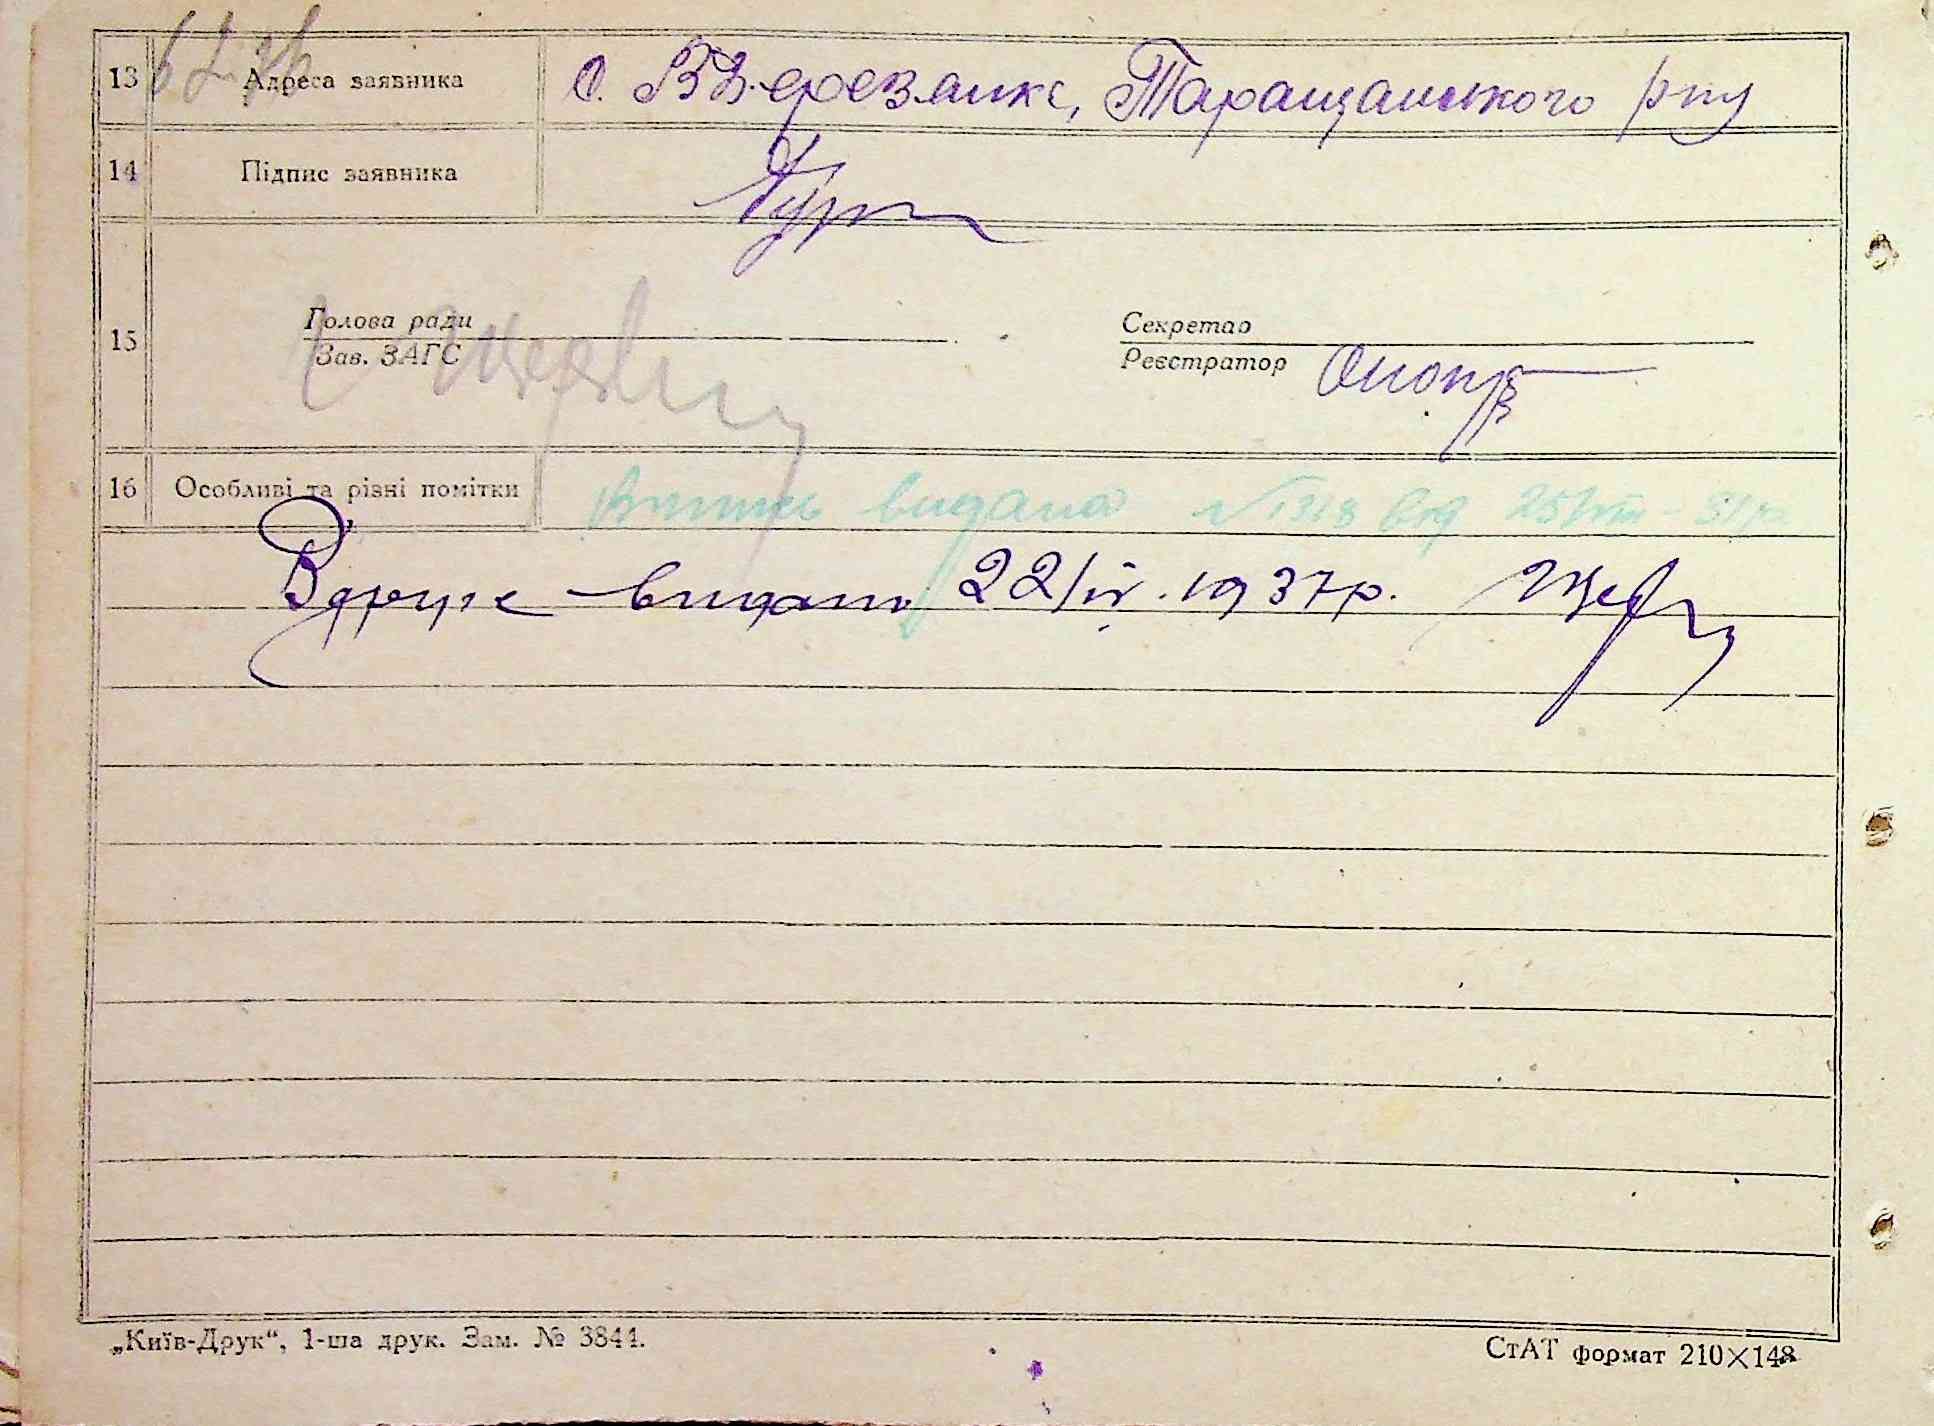 13 Адреса заявника с. В.Березанка, Таращанського р-ну
14 Підпис заявника
15 Голова ради Секретар
Зав. ЗАГС Реєстратор
16 Особливі та різні помітки Випись видана № 1318 від 25/VIII - 31 р.
Вдруге видано 22/IV. 1937р.
„Київ-Друк“, 1-ша друк. Зам. № 3844. СтАТ формат 210×148